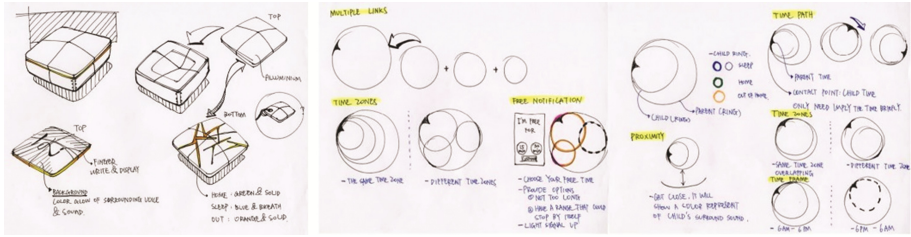 TOP
ALUMINIUM
BOTTOM
TOP
FINGER
WRITE & DISPLAY
BACKGROUND
COLOR GLOW OF SURROUNDING VOICE
& SOUND.
HOME : GREEN & SOLID
SLEEP : BLUE & BREATH
OUT : ORANGE & SOLID.
MULTIPLE LINKS
+ + 
TIME ZONES
- THE SAME TIME ZONE
- DIFFERENT TIME ZONES
FREE NOTIFICATION
I'M FREE
FOR
- CHOOSE YOUR FREE TIME
- PROVIDE OPTIONS
① NOT TOO LONG
② HAVE A RANGE, THEY COULD
STOP BY ITSELF
- LIGHT SIGNAL UP
- CHILD RING.
SLEEP
HOME
OUT OF HOME
PARENT (RING)
CHILD (RINGS)
PROXIMITY
- GET CLOSE, IT WILL
SHOW A COLOR REPRESENT
OF CHILD'S SURROUND SOUND.
TIME PATH
PARENT TIME
CONTACT POINT: CHILD TIME
ONLY NEED IMPLY THE TIME BRIEFLY.
TIME ZONES
- SAME TIME ZONE
OVERLAPPING
- DIFFERENT TIME ZONE
TIME FRAME
- 6AM - 6PM
- 6PM - 6AM